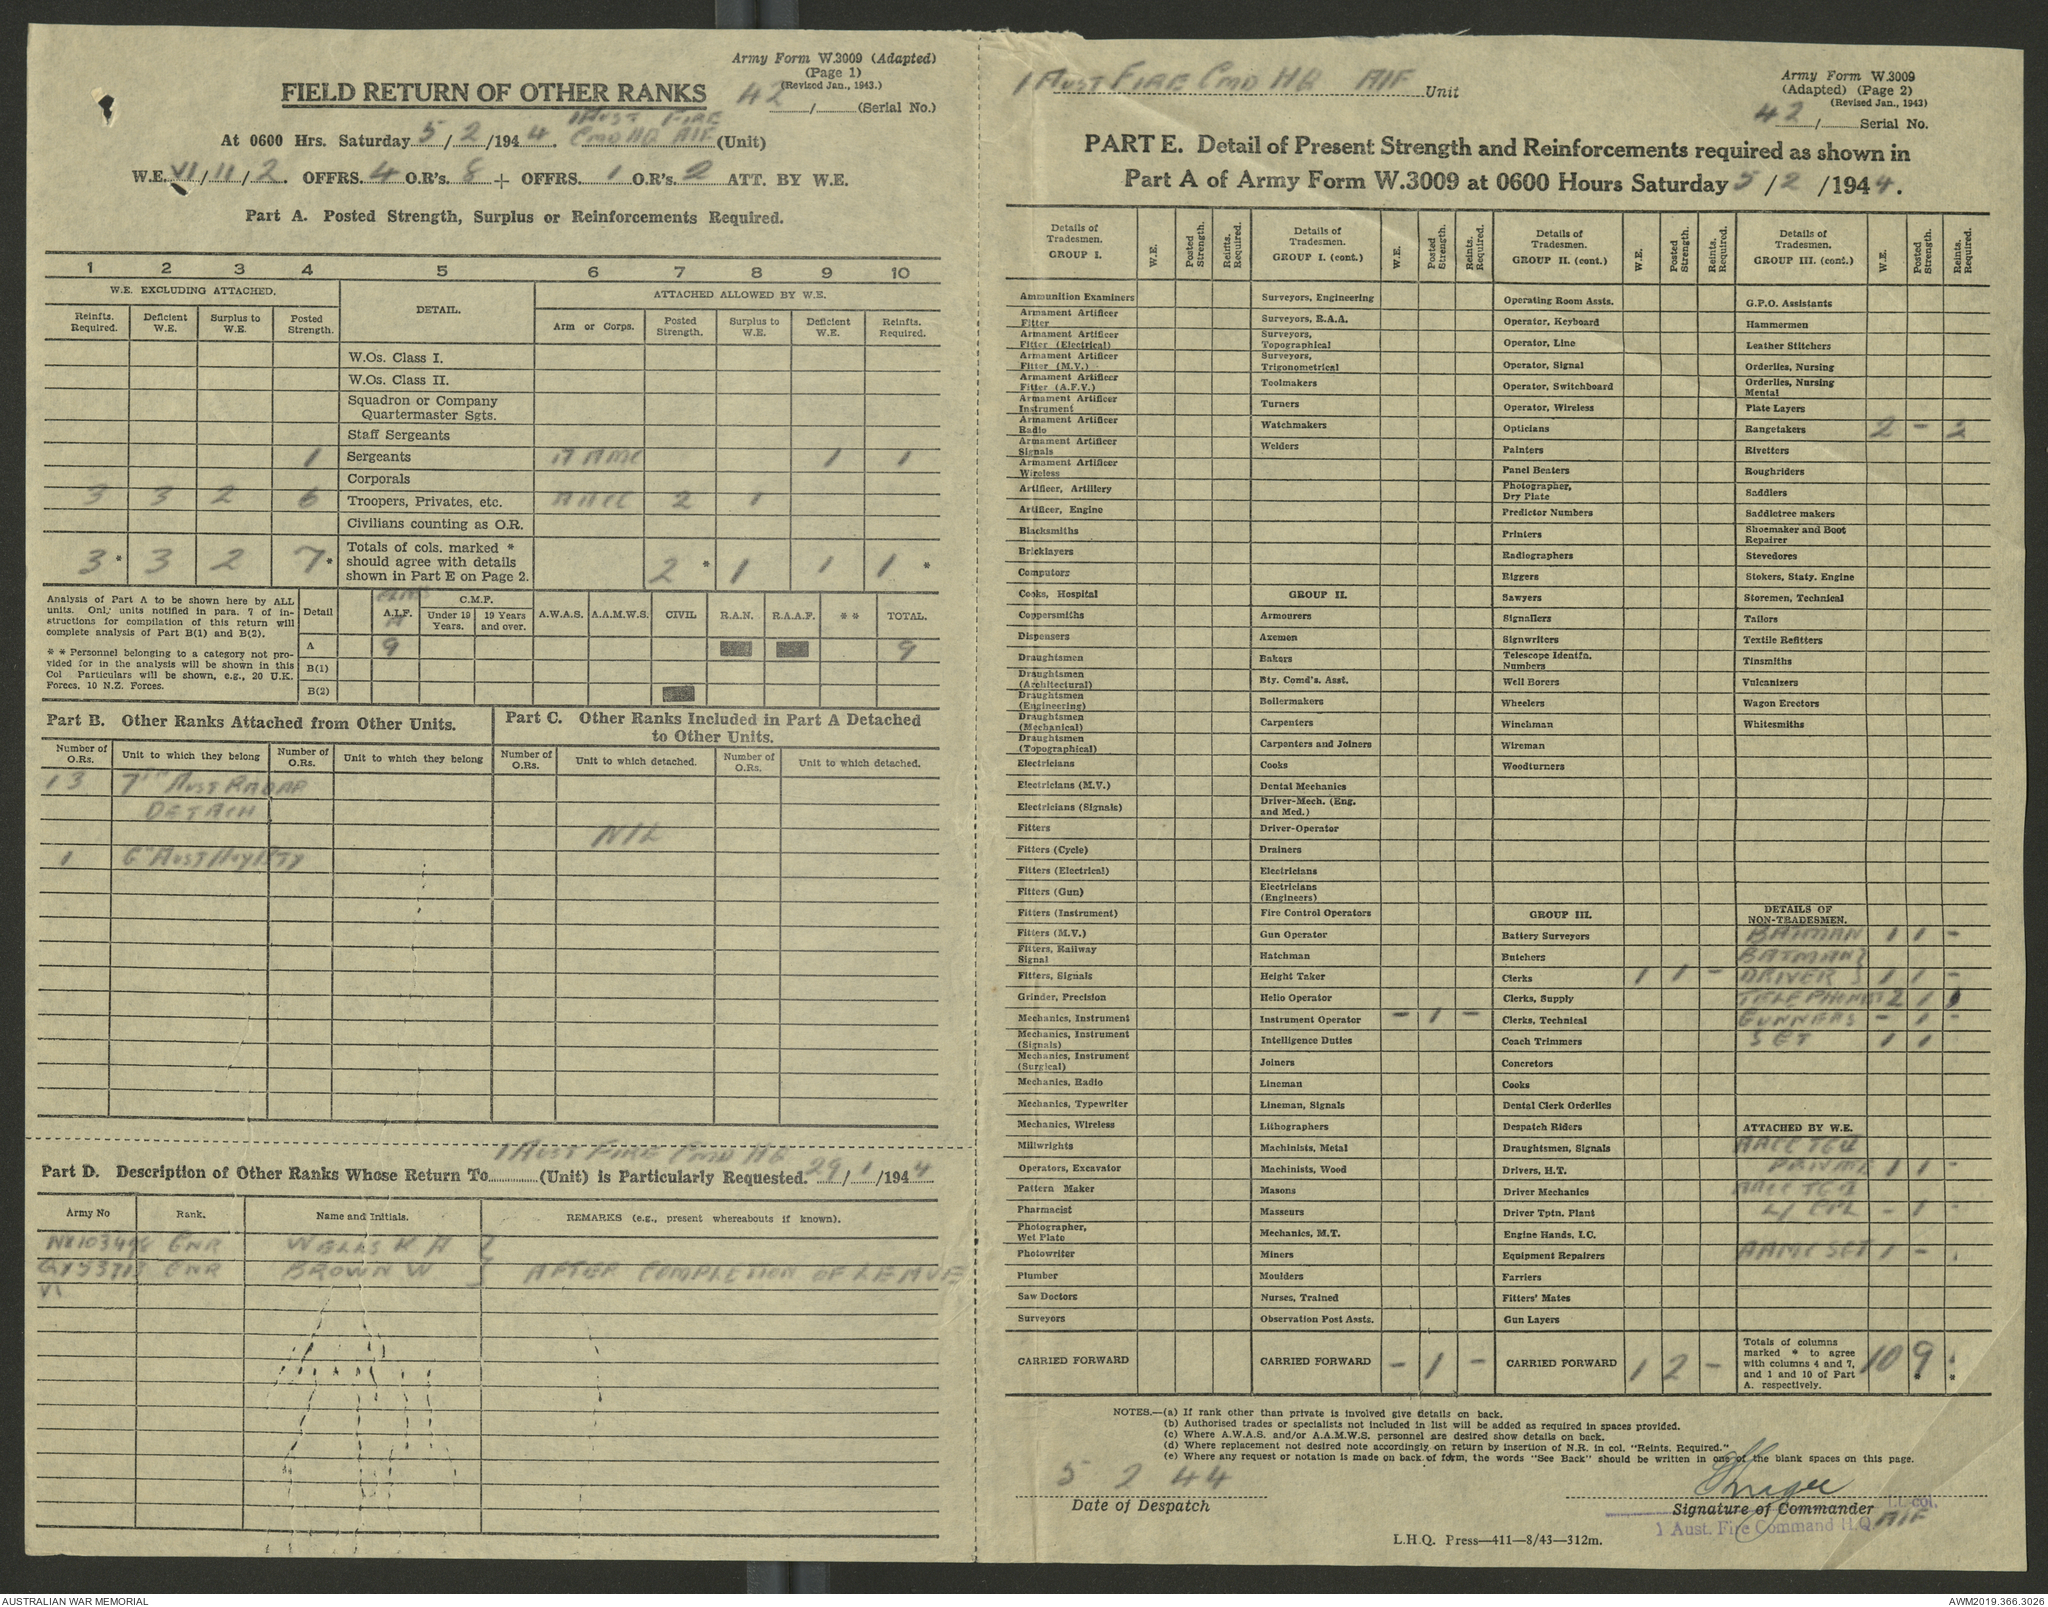 Army Form W.3009 (Adapted)
(Page 1)
(Revised Jan., 1943.)
FIELD RETURN OF OTHER RANKS
42 / (Serial No.)
At 0600 Hrs. Saturday 5/2/1944. 1 AUST FIRE CMD HQ AIF (Unit)
W.E. VI/11/2. OFFRS. 4 O.R's. 8 + OFFRS. 1 O.R's. 2 ATT. BY W.E.
Part A. Posted Strength, Surplus or Reinforcements Required.
1 2 3 4 5 6 7 8 9 10
W.E. EXCLUDING ATTACHED. DETAIL. ATTACHED ALLOWED BY W.E.
Reinfts. Required. Deficient W.E. Surplus to W.E. Posted Strength. Arm or Corps. Posted Strength. Surplus to W.E. Deficient W.E. Reinfts. Required.
W.Os. Class I.
W.Os. Class II.
Squadron or Company Quartermaster Sgts.
Staff Sergeants
1 Sergeants AAMC 1 1
Corporals
3 3 2 6 Troopers, Privates, etc. AACC 2 1
Civilians counting as O.R.
3* 3 2 7* Totals of cols. marked * should agree with details shown in Part E on Page 2. 2* 1 1 1*
Analysis of Part A to be shown here by ALL units. Only units notified in para. 7 of instructions for compilation of this return will complete analysis of Part B(1) and B(2).
* * Personnel belonging to a category not provided for in the analysis will be shown in this Col Particulars will be shown, e.g., 20 U.K. Forces, 10 N.Z. Forces.
Detail A.I.F. C.M.F. Under 19 Years. 19 Years and over. A.W.A.S. A.A.M.W.S. CIVIL R.A.N. R.A.A.F. ** TOTAL.
A 9 9
B(1)
B(2)
Part B. Other Ranks Attached from Other Units.
Number of O.Rs. Unit to which they belong Number of O.Rs. Unit to which they belong
13 7th AUST RADAR
DETACH
1 6th AUST HVY BTY
Part C. Other Ranks Included in Part A Detached to Other Units.
Number of O.Rs. Unit to which detached. Number of O.Rs. Unit to which detached.
NIL
Part D. Description of Other Ranks Whose Return To 1 AUST FIRE CMD HQ (Unit) is Particularly Requested. 29/1/1944
Army No Rank. Name and Initials. REMARKS (e.g., present whereabouts if known).
NX103498 GNR WELLS K A }
QX53713 GNR BROWN W } AFTER COMPLETION OF LEAVE
1 AUST FIRE CMD HQ AIF Unit
Army Form W.3009
(Adapted) (Page 2)
(Revised Jan., 1943)
42 / Serial No.
PART E. Detail of Present Strength and Reinforcements required as shown in
Part A of Army Form W.3009 at 0600 Hours Saturday 5/2/1944.
Details of Tradesmen. GROUP I. W.E. Posted Strength. Reinfts. Required.
Ammunition Examiners
Armament Artificer Fitter
Armament Artificer Fitter (Electrical)
Armament Artificer Fitter (M.V.)
Armament Artificer Fitter (A.F.V.)
Armament Artificer Instrument
Armament Artificer Radio
Armament Artificer Signals
Armament Artificer Wireless
Artificer, Artillery
Artificer, Engine
Blacksmiths
Bricklayers
Computors
Cooks, Hospital
Coppersmiths
Dispensers
Draughtsmen
Draughtsmen (Architectural)
Draughtsmen (Engineering)
Draughtsmen (Mechanical)
Draughtsmen (Topographical)
Electricians
Electricians (M.V.)
Electricians (Signals)
Fitters
Fitters (Cycle)
Fitters (Electrical)
Fitters (Gun)
Fitters (Instrument)
Fitters (M.V.)
Fitters, Railway Signal
Fitters, Signals
Grinder, Precision
Mechanics, Instrument
Mechanics, Instrument (Signals)
Mechanics, Instrument (Surgical)
Mechanics, Radio
Mechanics, Typewriter
Mechanics, Wireless
Millwrights
Operators, Excavator
Pattern Maker
Pharmacist
Photographer, Wet Plate
Photowriter
Plumber
Saw Doctors
Surveyors
CARRIED FORWARD
Details of Tradesmen. GROUP I. (cont.) W.E. Posted Strength. Reinfts. Required.
Surveyors, Engineering
Surveyors, R.A.A.
Surveyors, Topographical
Surveyors, Trigonometrical
Toolmakers
Turners
Watchmakers
Welders
GROUP II.
Armourers
Axemen
Bakers
Bty. Comd's. Asst.
Boilermakers
Carpenters
Carpenters and Joiners
Cooks
Dental Mechanics
Driver-Mech. (Eng. and Med.)
Driver-Operator
Drainers
Electricians
Electricians (Engineers)
Fire Control Operators
Gun Operator
Hatchman
Height Taker
Helio Operator
Instrument Operator - 1 -
Intelligence Duties
Joiners
Lineman
Lineman, Signals
Lithographers
Machinists, Metal
Machinists, Wood
Masons
Masseurs
Mechanics, M.T.
Miners
Moulders
Nurses, Trained
Observation Post Assts.
CARRIED FORWARD - 1 -
Details of Tradesmen. GROUP II. (cont.) W.E. Posted Strength. Reints. Required.
Operating Room Assts.
Operator, Keyboard
Operator, Line
Operator, Signal
Operator, Switchboard
Operator, Wireless
Opticians
Painters
Panel Beaters
Photographer, Dry Plate
Predictor Numbers
Printers
Radiographers
Riggers
Sawyers
Signallers
Signwriters
Telescope Identfn. Numbers
Well Borers
Wheelers
Winchman
Wireman
Woodturners
GROUP III.
Battery Surveyors
Butchers
Clerks 1 1 -
Clerks, Supply
Clerks, Technical
Coach Trimmers
Concretors
Cooks
Dental Clerk Orderlies
Despatch Riders
Draughtsmen, Signals
Drivers, H.T.
Driver Mechanics
Driver Tptn. Plant
Engine Hands, I.C.
Equipment Repairers
Farriers
Fitters' Mates
Gun Layers
CARRIED FORWARD 1 2 -
Details of Tradesmen. GROUP III. (cont.) W.E. Posted Strength. Reints. Required.
G.P.O. Assistants
Hammermen
Leather Stitchers
Orderlies, Nursing
Orderlies, Nursing Mental
Plate Layers
Rangetakers 2 - 2
Rivetters
Roughriders
Saddlers
Saddletree makers
Shoemaker and Boot Repairer
Stevedores
Stokers, Staty. Engine
Storemen, Technical
Tailors
Textile Refitters
Tinsmiths
Vulcanizers
Wagon Erectors
Whitesmiths
DETAILS OF NON-TRADESMEN.
BATMAN 1 1 -
BATMAN }
DRIVER } 1 1 -
TELEPHONIST 2 1 1
GUNNERS - 1 -
SGT 1 1
ATTACHED BY W.E.
AACC
PRIVATE 1 1 -
AACC
L/CPL - 1 -
AAMC SGT 1 -
Totals of columns marked * to agree with columns 4 and 7, and 1 and 10 of Part A. respectively. 10 9 * *
NOTES.—(a) If rank other than private is involved give details on back.
(b) Authorised trades or specialists not included in list will be added as required in spaces provided.
(c) Where A.W.A.S. and/or A.A.M.W.S. personnel are desired show details on back.
(d) Where replacement not desired note accordingly on return by insertion of N.R. in col. "Reints. Required."
(e) Where any request or notation is made on back of form, the words "See Back" should be written in one of the blank spaces on this page.
5 2 44
Date of Despatch
Signature of Commander Lt-col.
1 Aust. Fire Command H.Q. AIF
L.H.Q. Press—411—8/43—312m.
AUSTRALIAN WAR MEMORIAL
AWM2019.366.3026